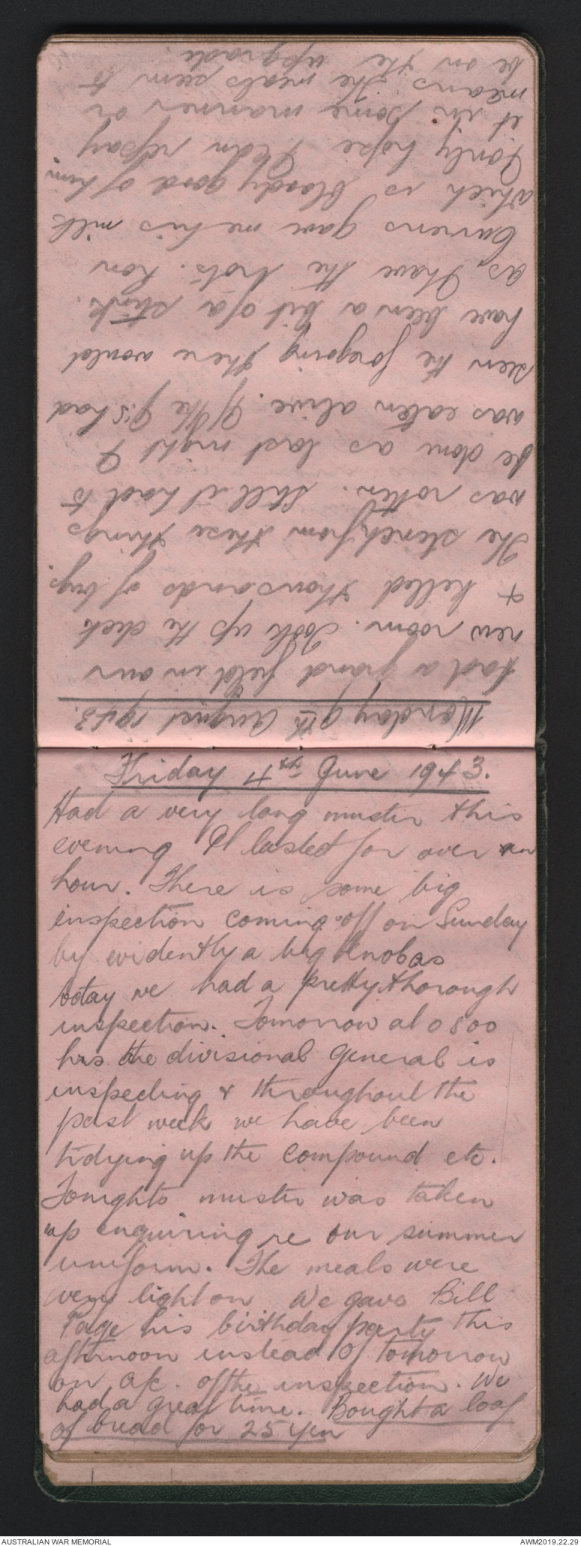 Monday 9th August 1943.
Had a grand field in our
new room. Took up the deck
& killed thousands of bugs.
The stench from these things
was rotten. Still it had to
be done as last night I
was eaten alive. If the J's had
seen the foregoing there would
have been a bit of a stink.
as I have the trots. Ron
Curren gave me his milk
which is bloody good of him.
I only hope I can repay
it in some manner or
means. The meals seem to
be on the upgrade.
Friday 4th June 1943.
Had a very long muster this
evening It lasted for over an
hour. There is some big
inspection coming off on Sunday
by evidently a big knob as
today we had a pretty thorough
inspection. Tomorrow at 0800
hrs the divisional General is
inspecting & throughout the
past week we have been
tidying up the compound etc.
Tonights muster was taken
up enquiring re our summer
uniform. The meals were
very light on. We gave Bill
Page his birthday party this
afternoon instead of tomorrow
on a/c. of the inspection. We
had a great time. Bought a loaf
of bread for 25 yen
AUSTRALIAN WAR MEMORIAL
AWM2019.22.29